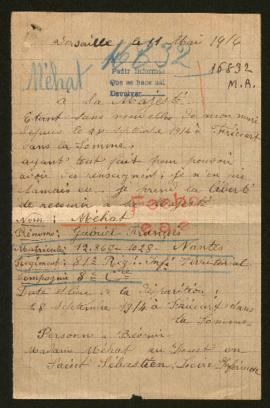 Versaille le 11 Mai 1916
16832
Méhat
Pedir Informe
Que se hace usal
Devolver
16832
M.A.
A Sa Majesté
Etant sans nouvelles de mon mari
depuis le 28 septembre 1914 à
dans la Somme.
ayant tout fait pour pouvoir
avoir des renseignement; je n'en ai
jamais eu. je prend la liberté
de recourir à
Fecho
Nom: Méhat
Prénoms: Gabriel François
Matricule: 12.868-1028- Nantes
Régiment: 81e Rég. Infé Territorial
Compagnie 8e Cie
Date et lieu de la disparition;
28 Septembre 1914 à dans
la Somme
Personne a Prévenir
Madame Méhat au en
Saint Sébastien, Loire Inférieure